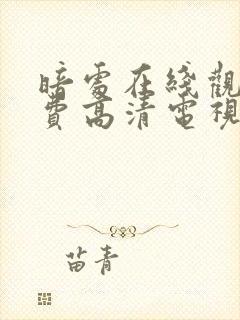 暗處在綫觀
費高清電視
苗青